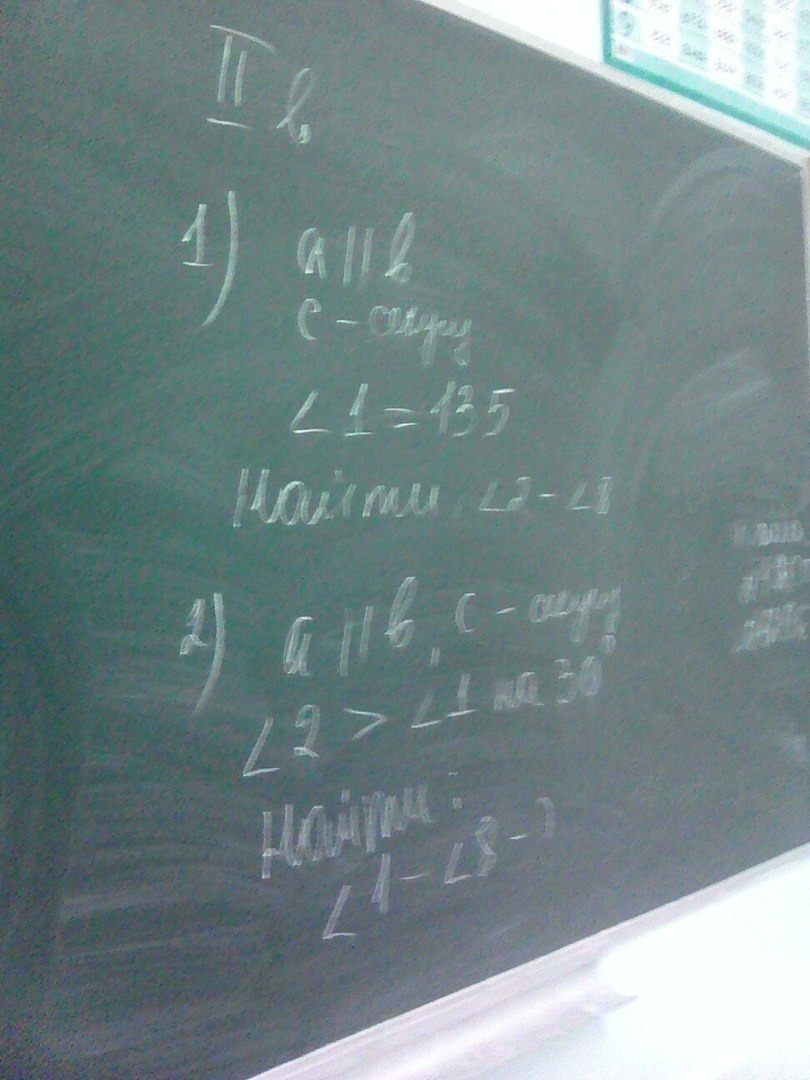 II в
1) a || b
c – секущ
∠1 = 135
Найти: ∠2 – ∠8
2) a || b, c – секущ
∠2 > ∠1 на 30°
Найти:
∠1 – ∠8 – ?